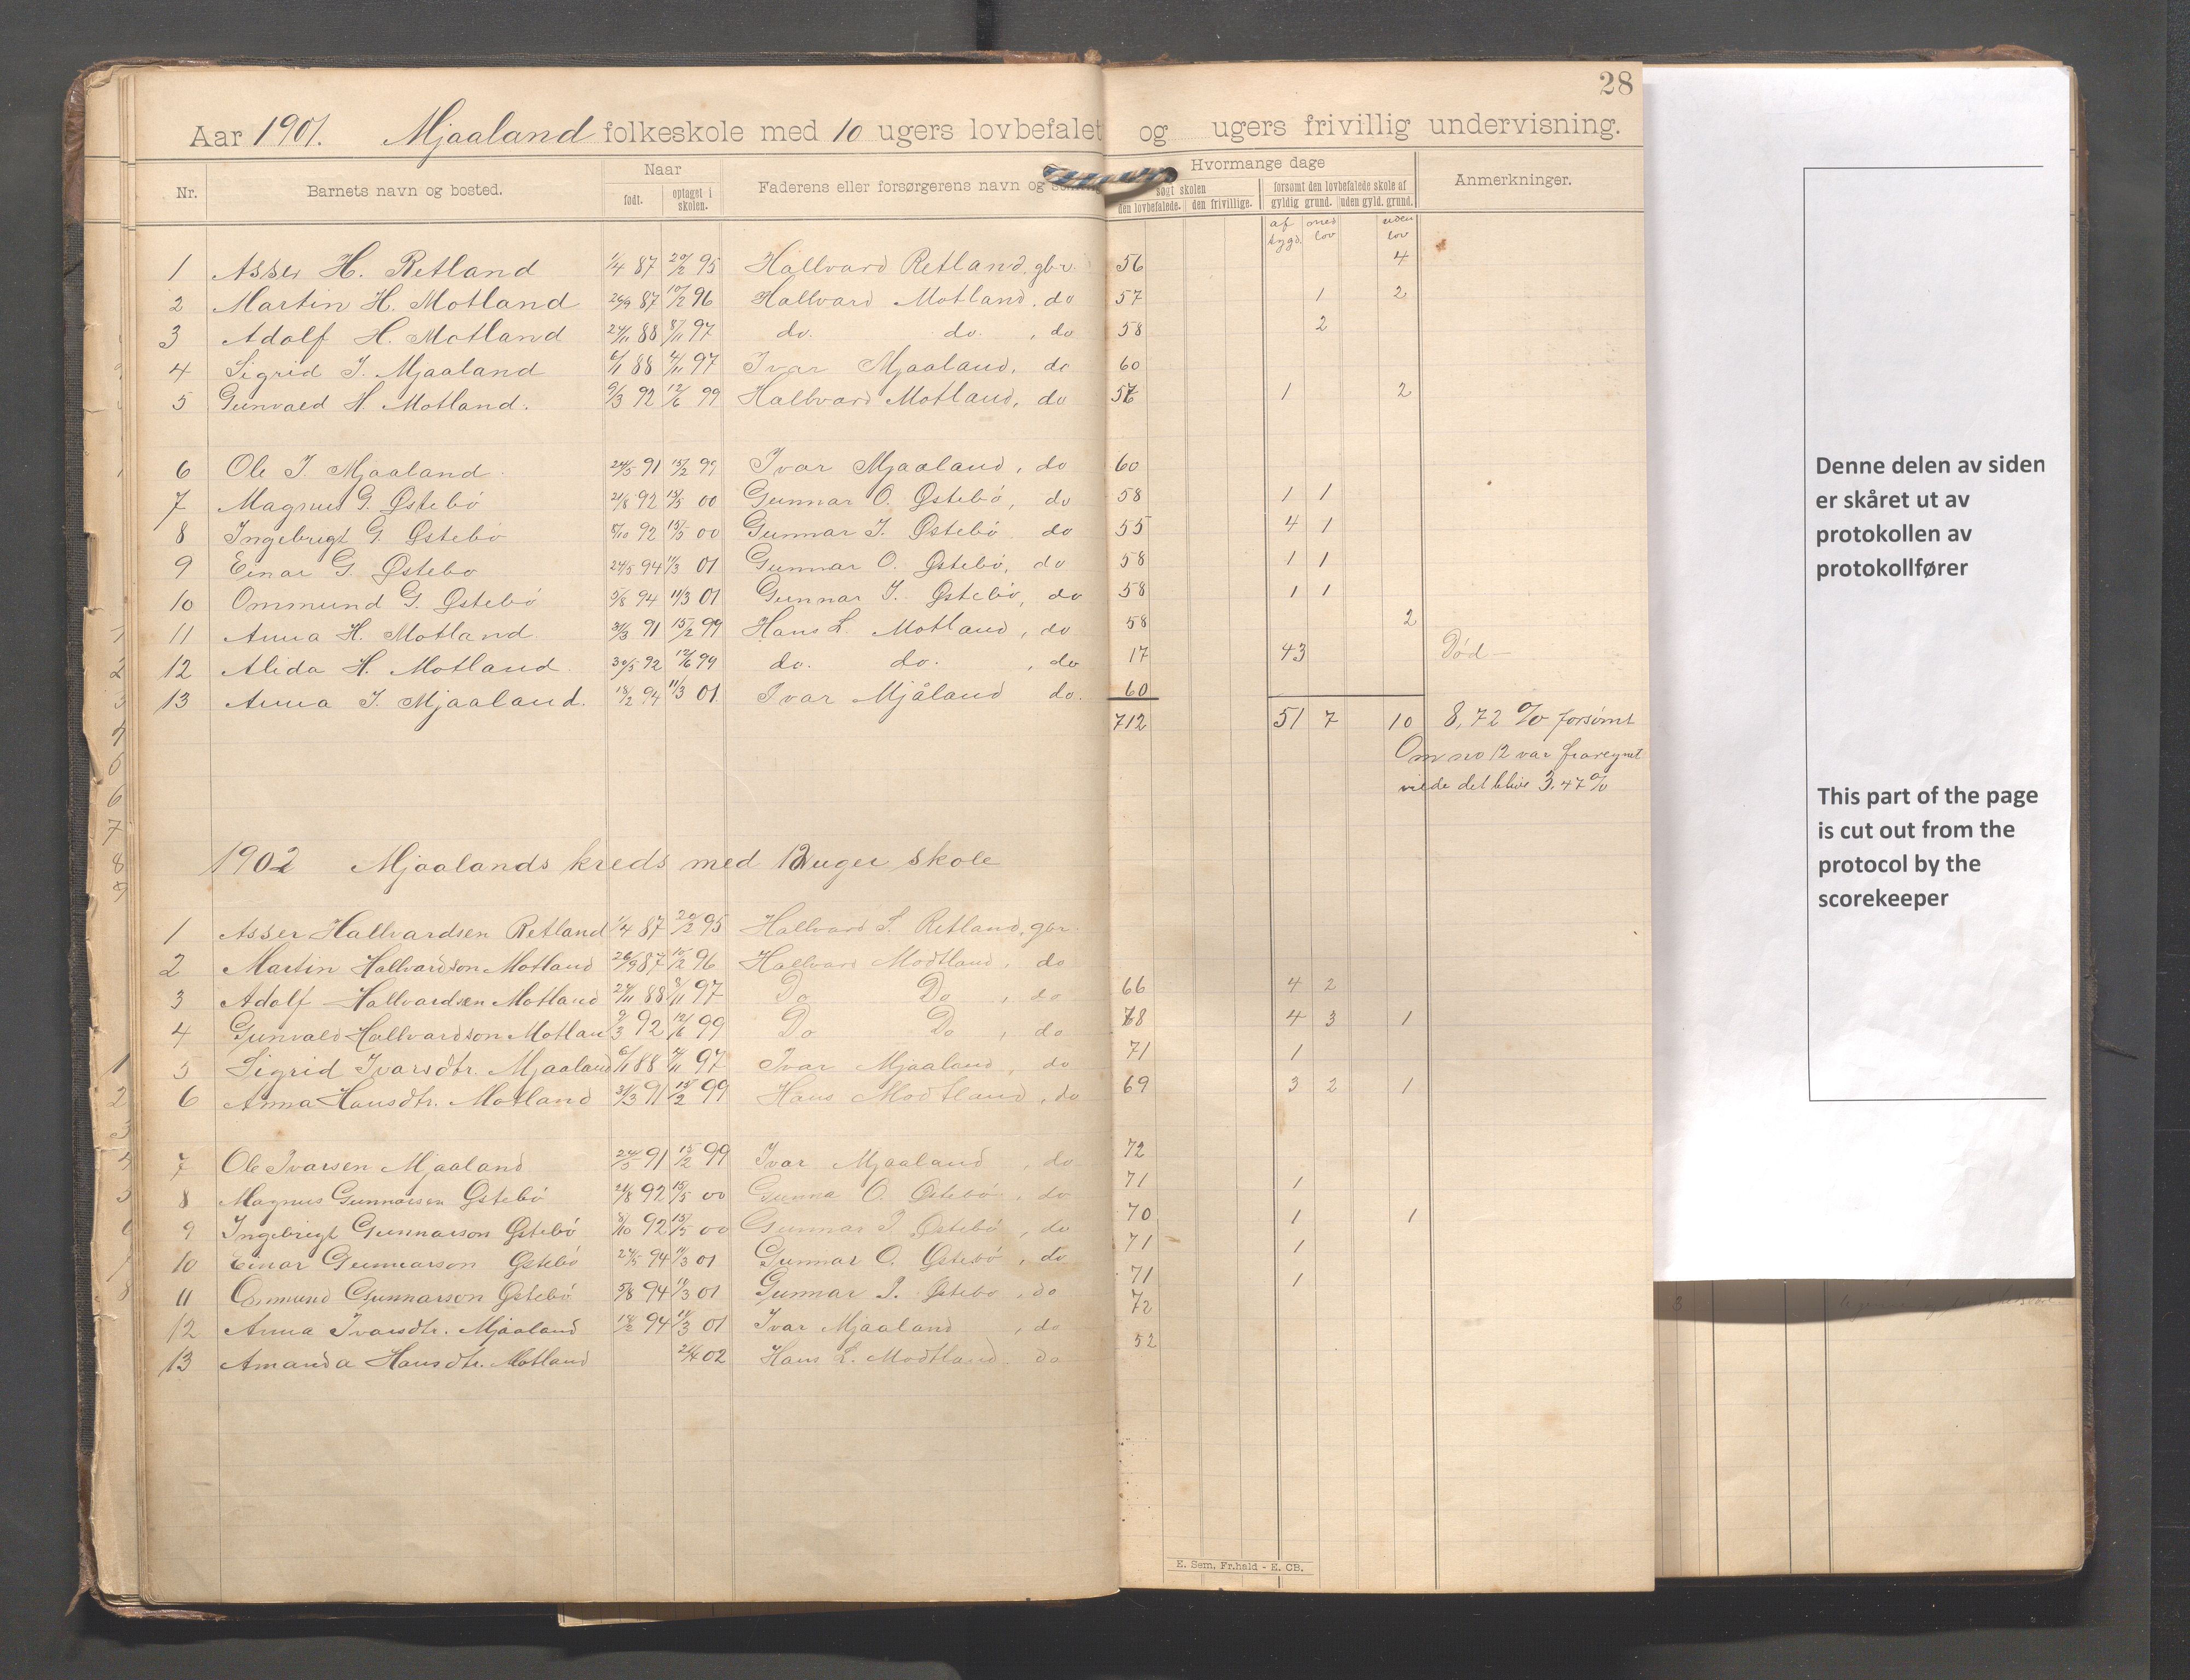 28
Aar 1901. Mjaaland folkeskole med 10 ugers lovbefalet og ugers frivillig undervisning.
Nr. Barnets navn og bosted. Naar Faderens eller forsørgerens navn og Hvormange dage Anmerkninger.
født. optaget i skolen. søgt skolen forsømt den lovbefalede skole af
den lovbefalede. den frivillige. gyldig grund. uden gyld. grund.
af sygd. med lov uden lov
1 Asser H. Retland 1/4 87 20/2 95 Hallvard Retland, gbr. 56 4
2 Martin H. Motland 26/9 87 10/2 96 Hallvard Motland, do 57 1 2
3 Adolf H. Motland 24/11 88 8/11 97 do. do. , do 58 2
4 Sigrid I. Mjaaland 6/1 88 4/11 97 Ivar Mjaaland, do 60
5 Gunvald H. Motland. 9/3 92 12/6 99 Hallvard Motland, do 57 1 2
6 Ole I. Mjaaland. 24/5 91 15/2 99 Ivar Mjaaland, do 60
7 Magnus G. Østebö 21/8 92 15/5 00 Gunnar O. Østebö, do 58 1 1
8 Ingebrigt G. Østebö 8/10 92 15/5 00 Gunnar I. Østebö do 55 4 1
9 Einar G. Østebö 24/5 94 11/3 01 Gunnar O. Østebö, do 58 1 1
10 Ommund G. Østebö 5/8 94 11/3 01 Gunnar I. Østebö, do 58 1 1
11 Anna H. Motland 31/3 91 15/2 99 Hans L. Motland, do 58 2
12 Alida H. Motland. 30/5 92 12/6 99 do. do. , do 17 43 Død
13 Anna I. Mjaaland. 18/2 94 11/3 01 Ivar Mjåland do. 60
712 51 7 10 8,72 % forsømt
Om no 12 var fraregnet
vilde det blive 3,47 %
1902 Mjaalands kreds med 12 uger skole
1 Asser Hallvardsen Retland 1/4 87 20/2 95 Hallvard S. Retland, gbr.
2 Martin Hallvardson Motland 26/9 87 10/2 96 Hallvard Modtland, do
3 Adolf Hallvardsen Motland 24/11 88 8/11 97 Do Do , do 66 4 2
4 Gunvald Hallvardson Motlan 9/3 92 12/6 99 Do Do , do 68 4 3 1
5 Sigrid Ivarsdtr. Mjaaland 6/1 88 4/11 97 Ivar Mjaaland, do 71 1
6 Anna Hansdtr. Motland 31/3 91 15/2 99 Hans Modtland, do 69 3 2 1
7 Ole Ivarsen Mjaaland 24/5 91 15/2 99 Ivar Mjaaland , do 72
8 Magnus Gunnarsen Østebö 21/8 92 15/5 00 Gunna O. Østebö, do 71 1
9 Ingebrigt Gunnarson Østebö 8/10 92 15/5 00 Gunnar I Østebö , do 70 1 1
10 Einar Gunnarson Østebö 24/5 94 11/3 01 Gunnar O. Østebö , do 71 1
11 Ommund Gunnarson Østebö 5/8 94 11/3 01 Gunnar I. Østebö , do 71 1
12 Anna Ivarsdtr. Mjaaland 18/2 94 11/3 01 Ivar Mjaaland , do 72
13 Amanda Hansdtr. Motland 24/4 02 Hans L. Modtland. do 52
E. Sem, Fr.hald - E. CB.
Denne delen av siden
er skåret ut av
protokollen av
protokollfører
This part of the page
is cut out from the
protocol by the
scorekeeper